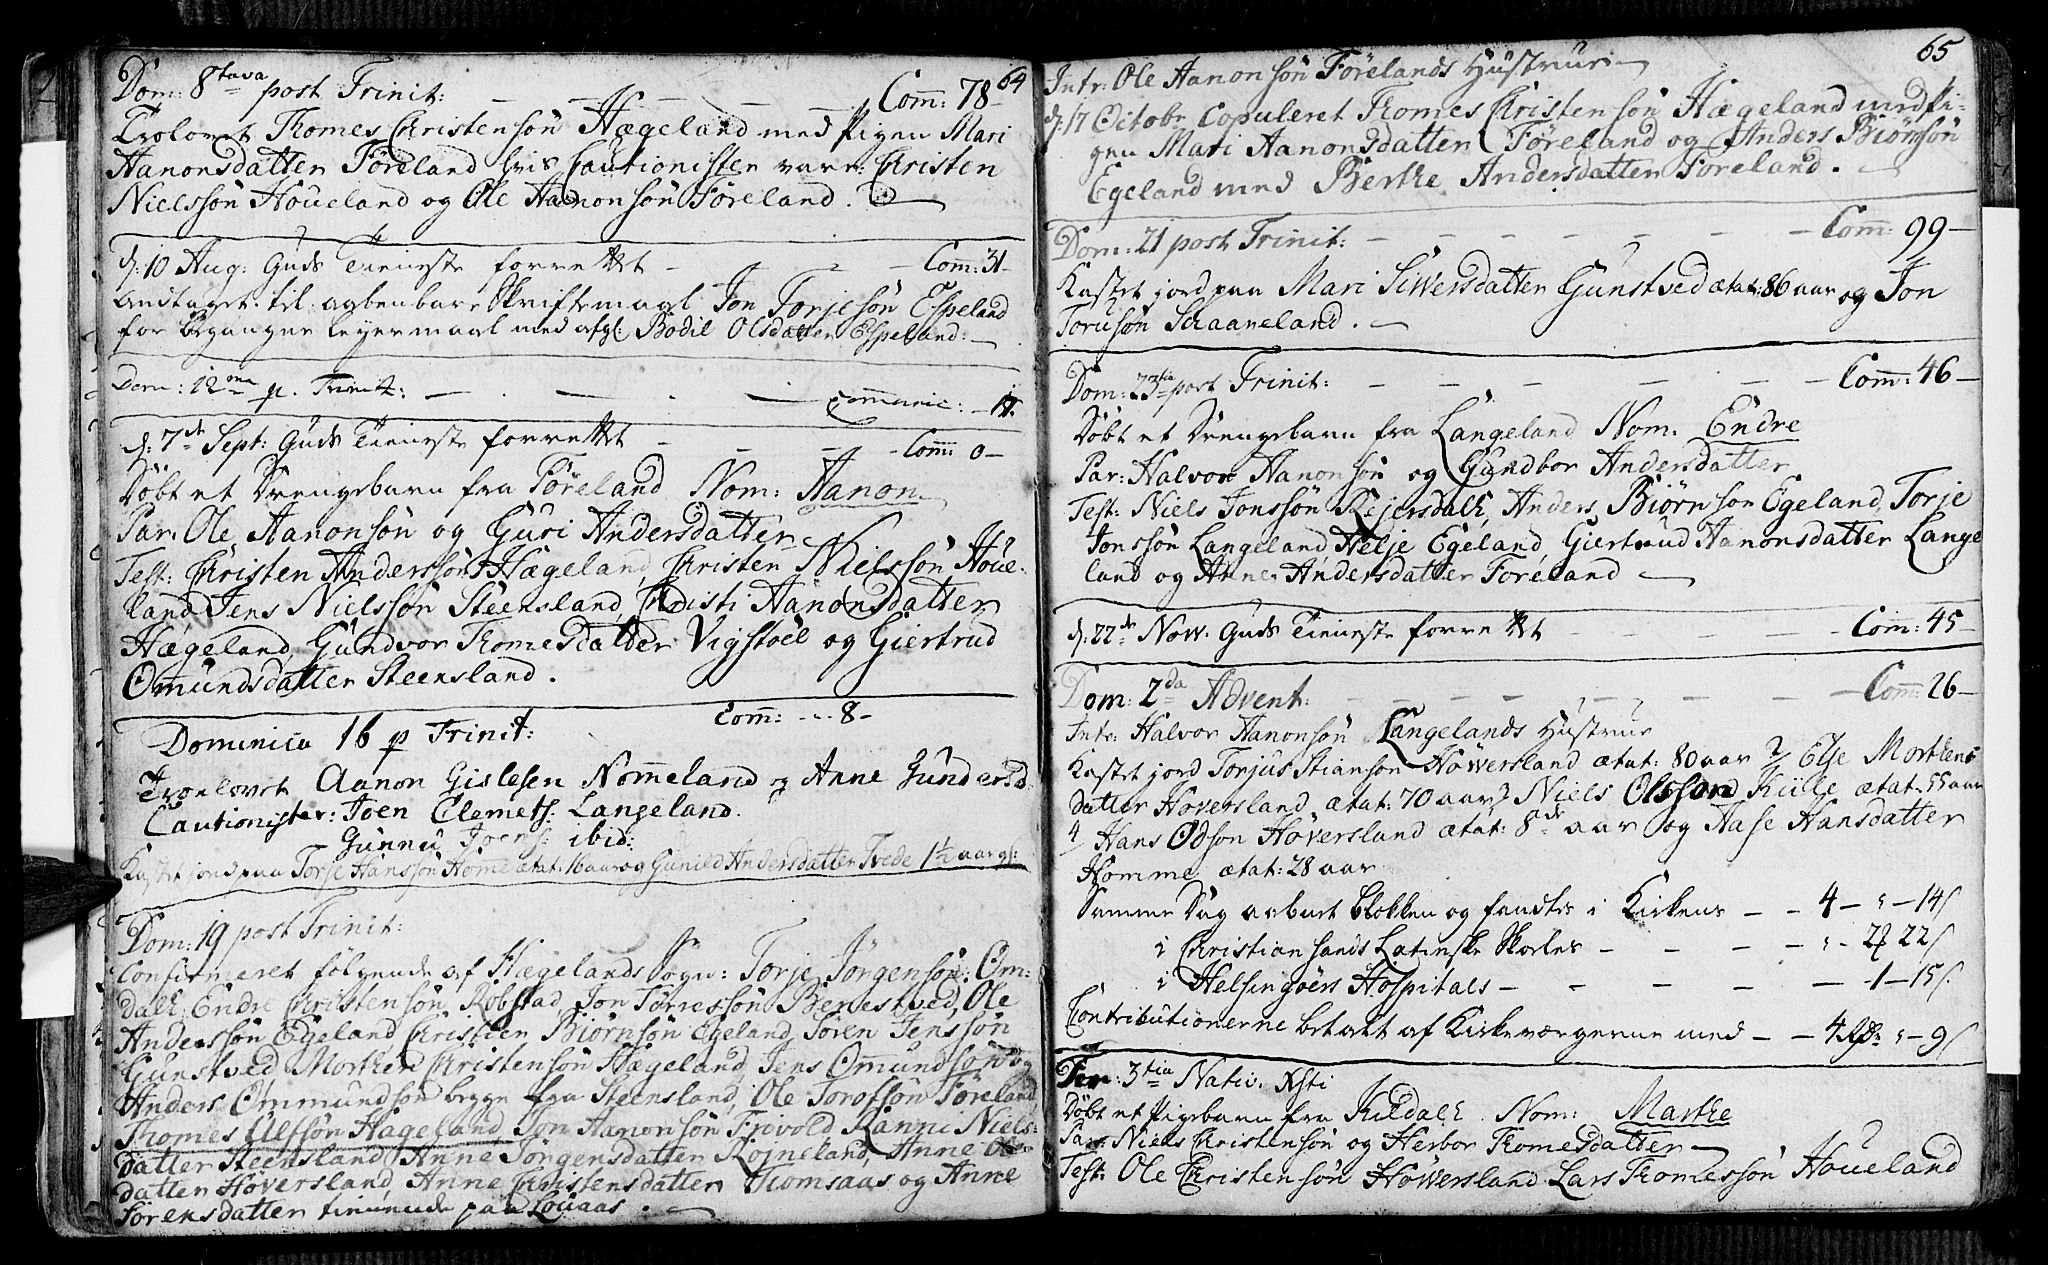 64
Dom: 8tava post Trinit: — — — — Com̄: 78—
Trolovet Thomes Christensön Hægeland med Pigen Mari
Aanonsdatter Föreland hvis Cautionister vare: Christen
Nielssön Houeland og Ole Aanonsön Föreland.
d: 10 Aug: Guds Tieneste forrettet — — — Com̄: 31—
Andtaget til aabenbare Skriftemaal Jon Torjesön Espeland
for begangne leyermaal med qfl: Bodil Olsdatter Espeland.
Dom: 12ma p. Trinit: — — — com̄unic: — 17.
d: 7de Sept: Guds Tieneste forrettet — — — Com̄: 0—
Döbt et Drengebarn fra Föreland Nom: Aanon
Par: Ole Aanonsön og Guri Andersdatter
Test: Christen Anderssön Hægeland, Christen Nielssön Houe-
land, Jens Nielssön Steensland, Christi Aanonsdatter
Hægeland, Gundvor Thomesdatter Vigstoel og Giertrud
Omundsdatter Steensland.
Dominica 16 p Trinit: Com̄: ... 8—
Troelovet Aanon Gislesen Nom̄eland og Anne Gundersd.
Cautionister: Joen Clemets: Langeland.
Gunnu Joens: ibid:
Kastet jord paa Torje Hanssön Home ætat: 16 aar og Gunild Andersdatter Tvede 1½ aar gl:
Dom: 19 post Trinit:
Confirmeret fölgende af Hægelands Sogn: Torje Jörgensön Om-
dalh, Endre Christensön Robstad, Jon Törressön Benestved, Ole
Anderssön Egeland, Christen Biörnsön Egeland, Sören Jenssön
Gunstved, Morthen Christensön Hægeland, Jens Om̄undsön og
Anders Om̄mundsön begge fra Steensland, Ole Torofsön Föreland,
Thomes Ulfsön Hageland, Jon Aanonsön Frivold, Kanni Niels-
datter Steensland, Anne Jörgensdatter Röjneland, Anne Ols-
datter Höversland, Anne Christensdatter Tiomsaas og Anne
Sörensdatter tienende paa Louaas.
65
Intr: Ole Aanonsön Förelands Hustrue
d: 17 Octobr Copuleret Thomes Christensön Hægeland med Pi-
gen Mari Aanonsdatter Föreland og Anders Biörnsön
Egeland med Berthe Andersdatter Föreland.
Dom: 21 post Trinit: — — — — — Com̄: 99—
Kastet jord paa Mari Siwersdatter Gunstved ætat: 86 aar og Jon
Toruson Schaaneland.
Dom: 23tia post Trinit: — — — — — Com̄: 46—
Döbt et Drengebarn fra Langeland Nom: Endre
Par: Halvor Aanonsön og Gundbor Andersdatter
Test: Niels Jonssön Rejersdalh, Anders Biörnsön Egeland, Torje
Jonssön Langeland, Helje Egeland, Giertrud Aanonsdatter Lange
land og Anne Andersdatter Föreland
d: 22de Now. Guds Tieneste forrettet — — — — Com: 45—
Dom: 2da Advent: — — — — — Com̄: 26—
Intr: Halvor Aanonsön Langelands Hustrue
Kastet jord Torjus Stiansön Höwersland ætat: 80 aar 2/ Elje Morthens
datter Höversland ætat: 70 aar 3/ Niels Olsson Kiile ætat: 55 aar
4/ Hans Odson Höversland ætat: 8de aar og Aase Hansdatter
Homme ætat: 28 aar
Samme Dag aabnet blokken og fandtes i Kirkens — — 4 — " — 14 s
i Christiansands Latinske Skoeles — — — — " — 22 s
i Helsingöers Hospitals — — — — — 1 — 15 s.
Contributionerne betalt af Kirkeværgerne med — — 4 Rdr " — 9 s
Fer: 3tia Nativ. Xsti
Döbt et Pigebarn fra Kildalh Nom: Marthe
Par: Niels Christensön og Herbor Thomesdatter
Test: Ole Christensön Höwersland, Lars Thomessön Houeland